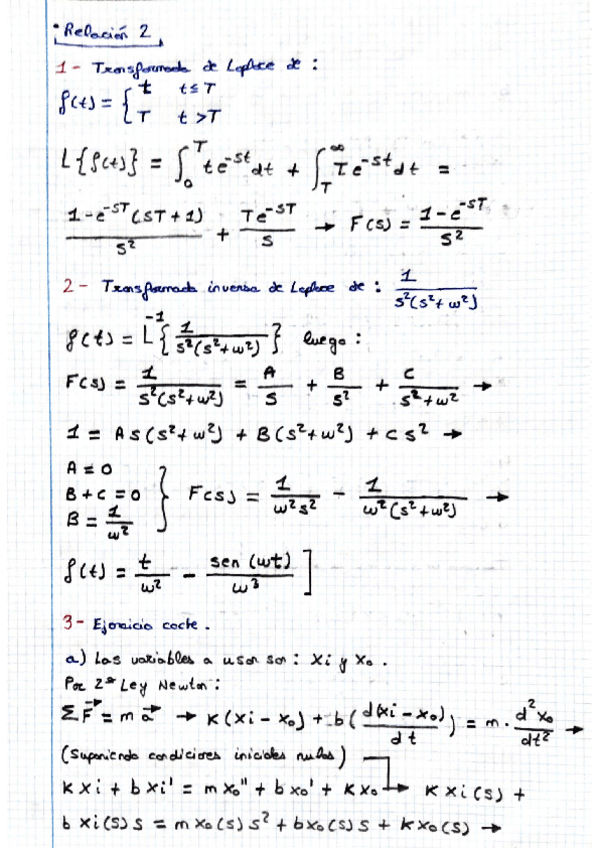 • Relación 2
1- Transformada de Laplace de :
f(t) = { t t≤T
T t >T
L{f(t)} = ∫₀ᵀ te^-st dt + ∫_T^∞ Te^-st dt =
1-e^-sT (sT+1) / s² + Te^-sT / s → F(s) = 1-e^-sT / s²
2- Transformada inversa de Laplace de : 1 / s²(s²+w²)
f(t) = L^-1 { 1 / s²(s²+w²) } luego :
F(s) = 1 / s²(s²+w²) = A / s + B / s² + C / s²+w² →
1 = As(s²+w²) + B(s²+w²) + Cs² →
A = 0
B + C = 0 } F(s) = 1 / w²s² - 1 / w²(s²+w²) →
B = 1 / w²
f(t) = t / w² - sen (wt) / w³ ]
3- Ejercicio coche .
a) Las variables a usar son : xi y xo .
Por 2ª Ley Newton :
ΣF⃗ = m a⃗ → K(xi - xo) + b( d(xi - xo) / dt ) = m · d²xo / dt² →
(Suponiendo condiciones iniciales nulas)
Kxi + bxi' = mxo'' + bxo' + Kxo → Kxi(s) +
bxi(s)s = mxo(s)s² + bxo(s)s + kxo(s) →